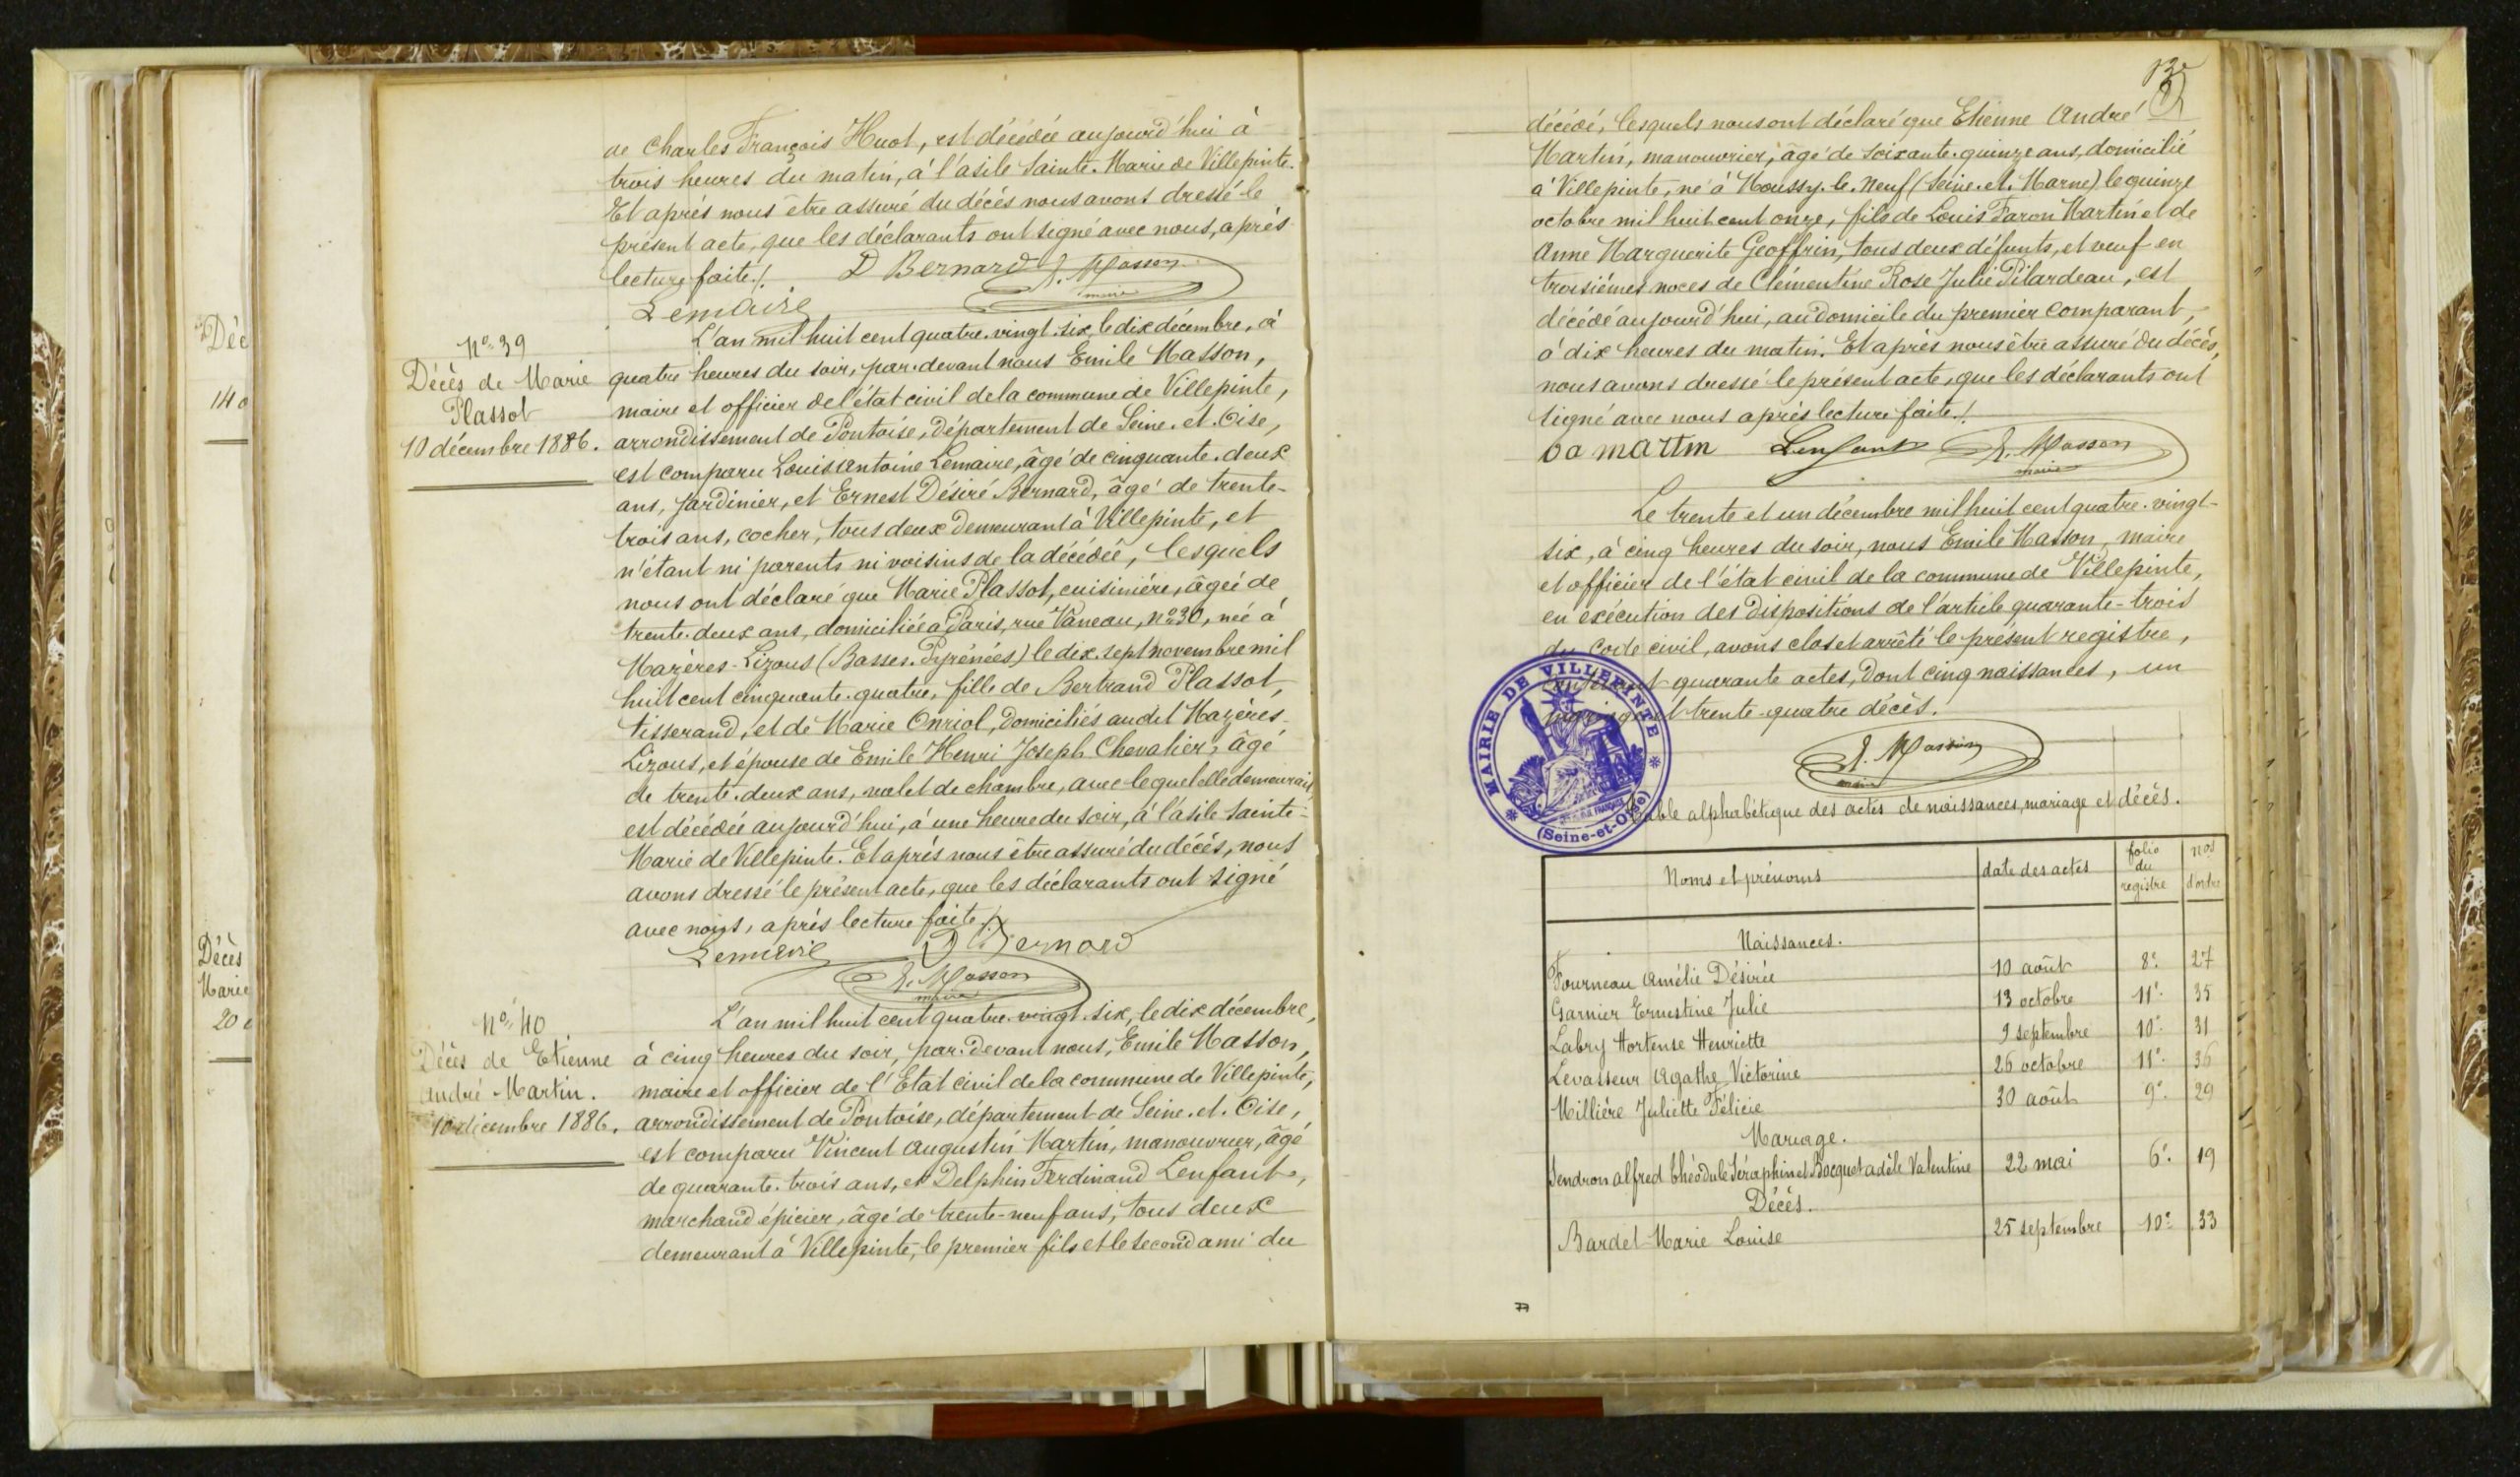 Déc
14 o
Décès
Marie
20 o
de Charles François Huot, est décédée aujourd'hui à
trois heures du matin, à l'asile Sainte-Marie de Villepinte.
Et après nous être assuré du décès nous avons dressé le
présent acte, que les déclarants ont signé avec nous, après
lecture faite./. D Bernard E. Masson
maire
Lemaire
N° 39
Décès de Marie
Plassot
10 décembre 1886.
L'an mil huit cent quatre-vingt-six, le dix décembre, à
quatre heures du soir, par-devant nous Emile Masson,
maire et officier de l'état civil de la commune de Villepinte,
arrondissement de Pontoise, département de Seine-et-Oise,
est comparu Louis Antoine Lemaire, âgé de cinquante-deux
ans, jardinier, et Ernest Désiré Bernard, âgé de trente-
trois ans, cocher, tous deux demeurant à Villepinte, et
n'étant ni parents ni voisins de la décédée, lesquels
nous ont déclaré que Marie Plassot, cuisinière, âgée de
trente-deux ans, domiciliée à Paris, rue Vaneau, n° 30, née à
Mazères-Lezons (Basses-Pyrénées) le dix-sept novembre mil
huit cent cinquante-quatre, fille de Bertrand Plassot,
tisserand, et de Marie Onriol, domiciliés audit Mazères-
Lezons, et épouse de Emile Henri Joseph Chevalier, âgé
de trente-deux ans, valet de chambre, avec lequel elle demeurait,
est décédée aujourd'hui, à une heure du soir, à l'asile Sainte-
Marie de Villepinte. Et après nous être assuré du décès, nous
avons dressé le présent acte, que les déclarants ont signé
avec nous, après lecture faite./.
Lemaire D Bernard
E. Masson
maire
N° 40
Décès de Etienne
André Martin.
10 décembre 1886.
L'an mil huit cent quatre-vingt-six, le dix décembre,
à cinq heures du soir, par-devant nous, Emile Masson,
maire et officier de l'Etat civil de la commune de Villepinte,
arrondissement de Pontoise, département de Seine-et-Oise,
est comparu Vincent Augustin Martin, manouvrier, âgé
de quarante-trois ans, et Delphin Ferdinand Lenfant,
marchand épicier, âgé de trente-neuf ans, tous deux
demeurant à Villepinte, le premier fils et le second ami du
13e
décédé, lesquels nous ont déclaré que Etienne André
Martin, manouvrier, âgé de soixante-quinze ans, domicilié
à Villepinte, né à Moussy-le-Neuf (Seine-et-Marne) le quinze
octobre mil huit cent onze, fils de Louis Faron Martin et de
Anne Marguerite Geoffrin, tous deux défunts, et veuf en
troisièmes noces de Clémentine Rose Julie Pilardeau, est
décédé aujourd'hui, au domicile du premier comparant,
à dix heures du matin. Et après nous être assuré du décès,
nous avons dressé le présent acte, que les déclarants ont
signé avec nous après lecture faite./.
martin Lenfant E. Masson
maire
Le trente et un décembre mil huit cent quatre-vingt-
six, à cinq heures du soir, nous Emile Masson, maire
et officier de l'état civil de la commune de Villepinte,
en exécution des dispositions de l'article quarante-trois
du code civil, avons clos et arrêté le présent registre,
contenant quarante actes, dont cinq naissances, un
mariage et trente-quatre décès.
E. Masson
maire
MAIRIE DE VILLEPINTE
(Seine-et-Oise)
Table alphabétique des actes de naissances, mariage et décès.
Noms et prénoms date des actes folio du registre nos d'ordre
Naissances.
Fourneau Amélie Désirée 10 août 8e 27
Garnier Ernestine Julie 13 octobre 11e 35
Labry Hortense Henriette 9 septembre 10e 31
Levasseur Agathe Victorine 26 octobre 11e 36
Millière Juliette Félicie 30 août 9e 29
Mariage.
Sendron Alfred Théodule Séraphin et Bocquet Adèle Valentine 22 mai 6e 19
Décès.
Bardel Marie Louise 25 septembre 10e 33